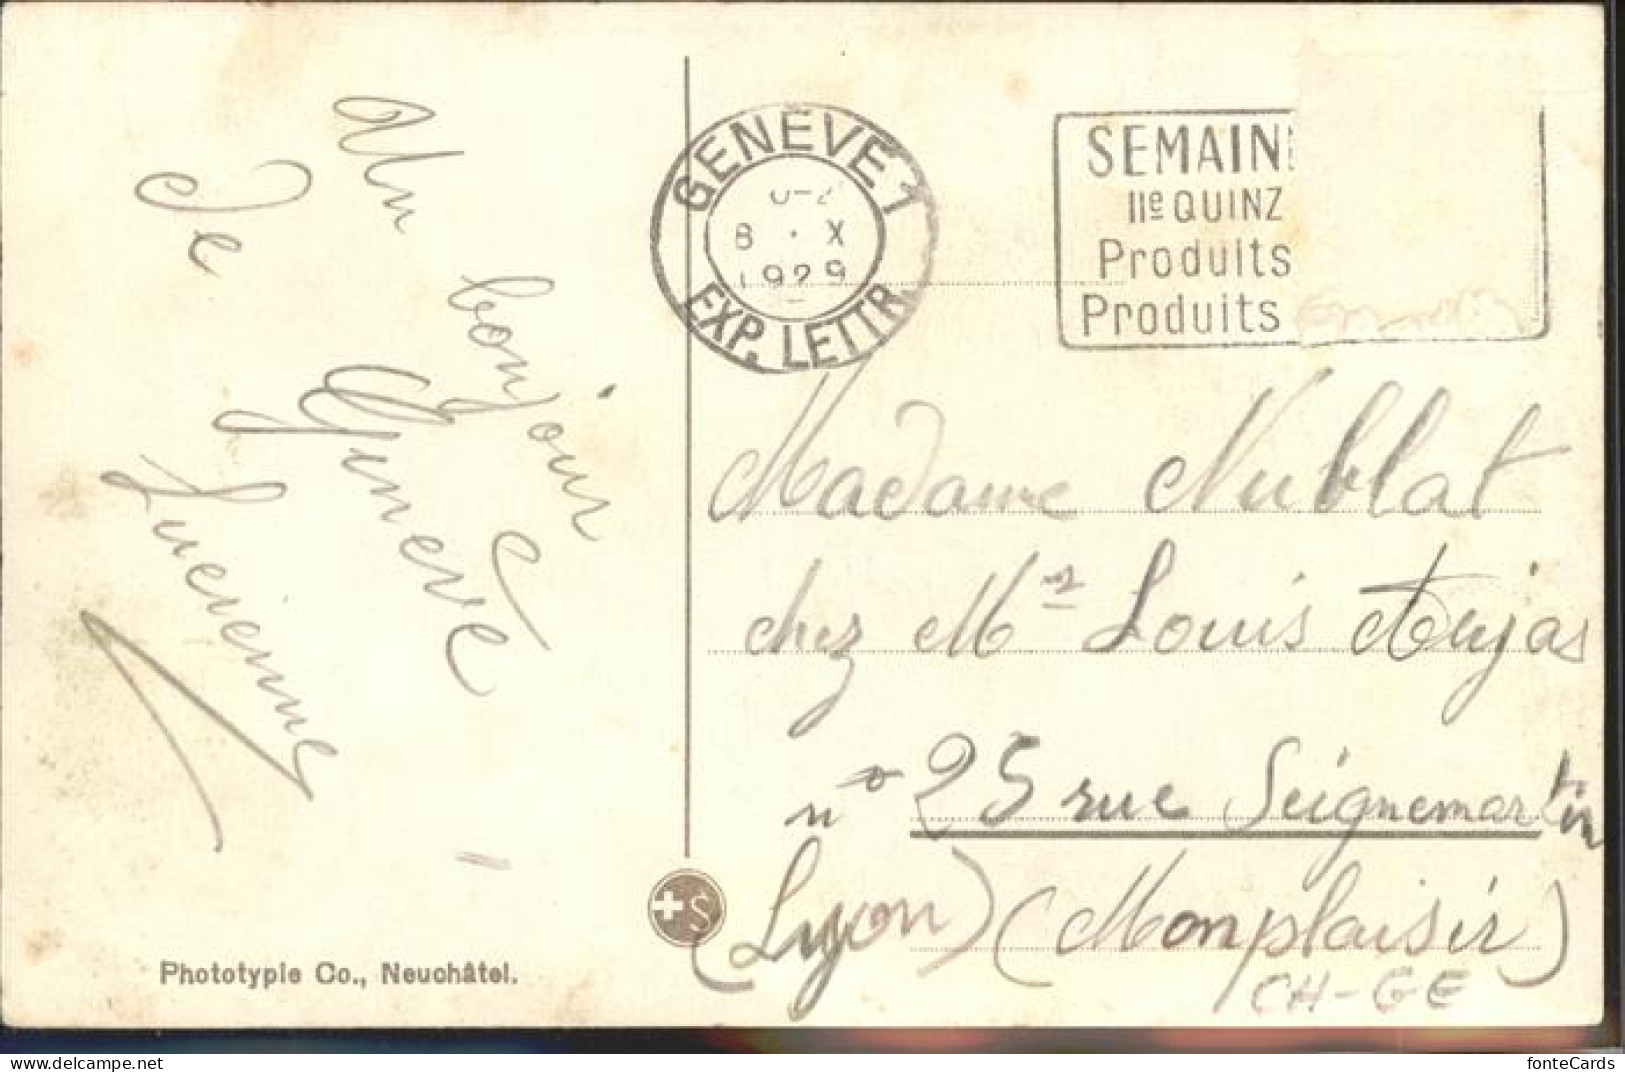 Un bonjour
de Genève
Lucienne
Phototypie Co., Neuchâtel.
GENÈVE 1
8 · X
1929
EXP. LETTR
SEMAIN
IIe QUINZ
Produits
Produits
Madame Nublat
chez Mr Louis
n° 25 rue Seignemartin
(Lyon) (Monplaisir)
CH-GE
fonteCards
https://www.delcampe.net